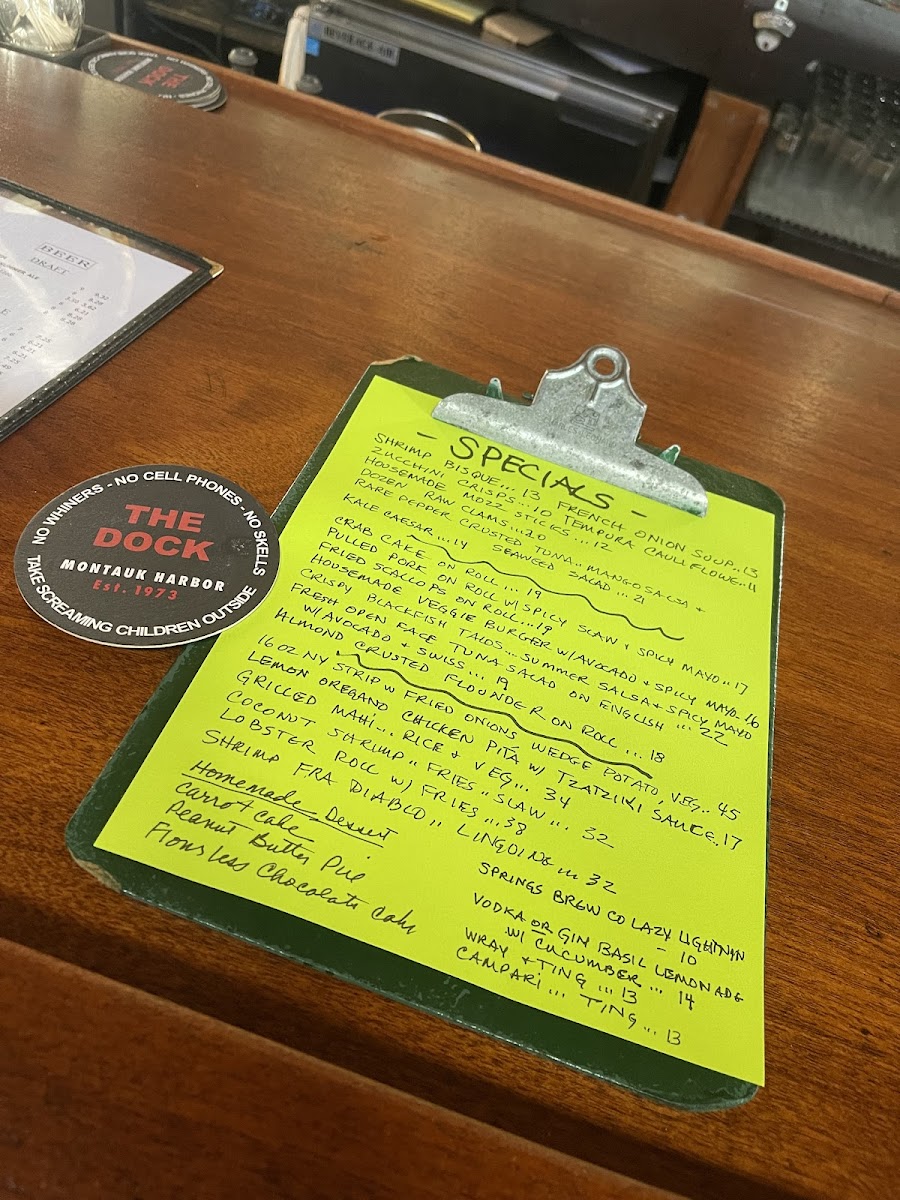 - SPECIALS -
SHRIMP BISQUE... 13 FRENCH ONION SOUP..13
ZUCCHINI CRISPS...10 TEMPURA CAULIFLOWER..11
HOUSEMADE MOZZ STICKS... 12
DOZEN RAW CLAMS...20
RARE PEPPER CRUSTED TUNA..MANGO SALSA +
SEAWEED SALAD ... 21
KALE CAESAR...14
CRAB CAKE ON ROLL ... 19
PULLED PORK ON ROLL W/ SPICY SLAW + SPICY MAYO..17
FRIED SCALLOPS ON ROLL...19
HOUSEMADE VEGGIE BURGER W/AVOCADO + SPICY MAYO-16
CRISPY BLACKFISH TACOS...SUMMER SALSA + SPICY MAYO ... 22
FRESH OPEN FACE TUNA SALAD ON ENGLISH
W/AVOCADO + SWISS ... 19
ALMOND CRUSTED FLOUNDER ON ROLL ... 18
16 OZ NY STRIP W FRIED ONIONS, WEDGE POTATO, VEG.. 45
LEMON OREGANO CHICKEN PITA W/ TZATZIKI SAUCE.17
GRILLED MAHI... RICE + VEG... 34
COCONUT SHRIMP.. FRIES.. SLAW... 32
LOBSTER ROLL W/ FRIES...38
SHRIMP FRA DIABLO.. LINGUINE ... 32
Homemade Dessert
Carrot cake
Peanut Butter Pie
Flourless Chocolate Cake
SPRINGS BREW CO LAZY LIGHTNIN
- 10
VODKA OR GIN BASIL LEMONADE
W/ CUCUMBER ... 14
WRAY + TING ... 13
CAMPARI ... TING ... 13
NO WHINERS - NO CELL PHONES - NO SKELLS
THE
DOCK
MONTAUK HARBOR
Est. 1973
TAKE SCREAMING CHILDREN OUTSIDE
BEER
DRAFT
THE
DOCK